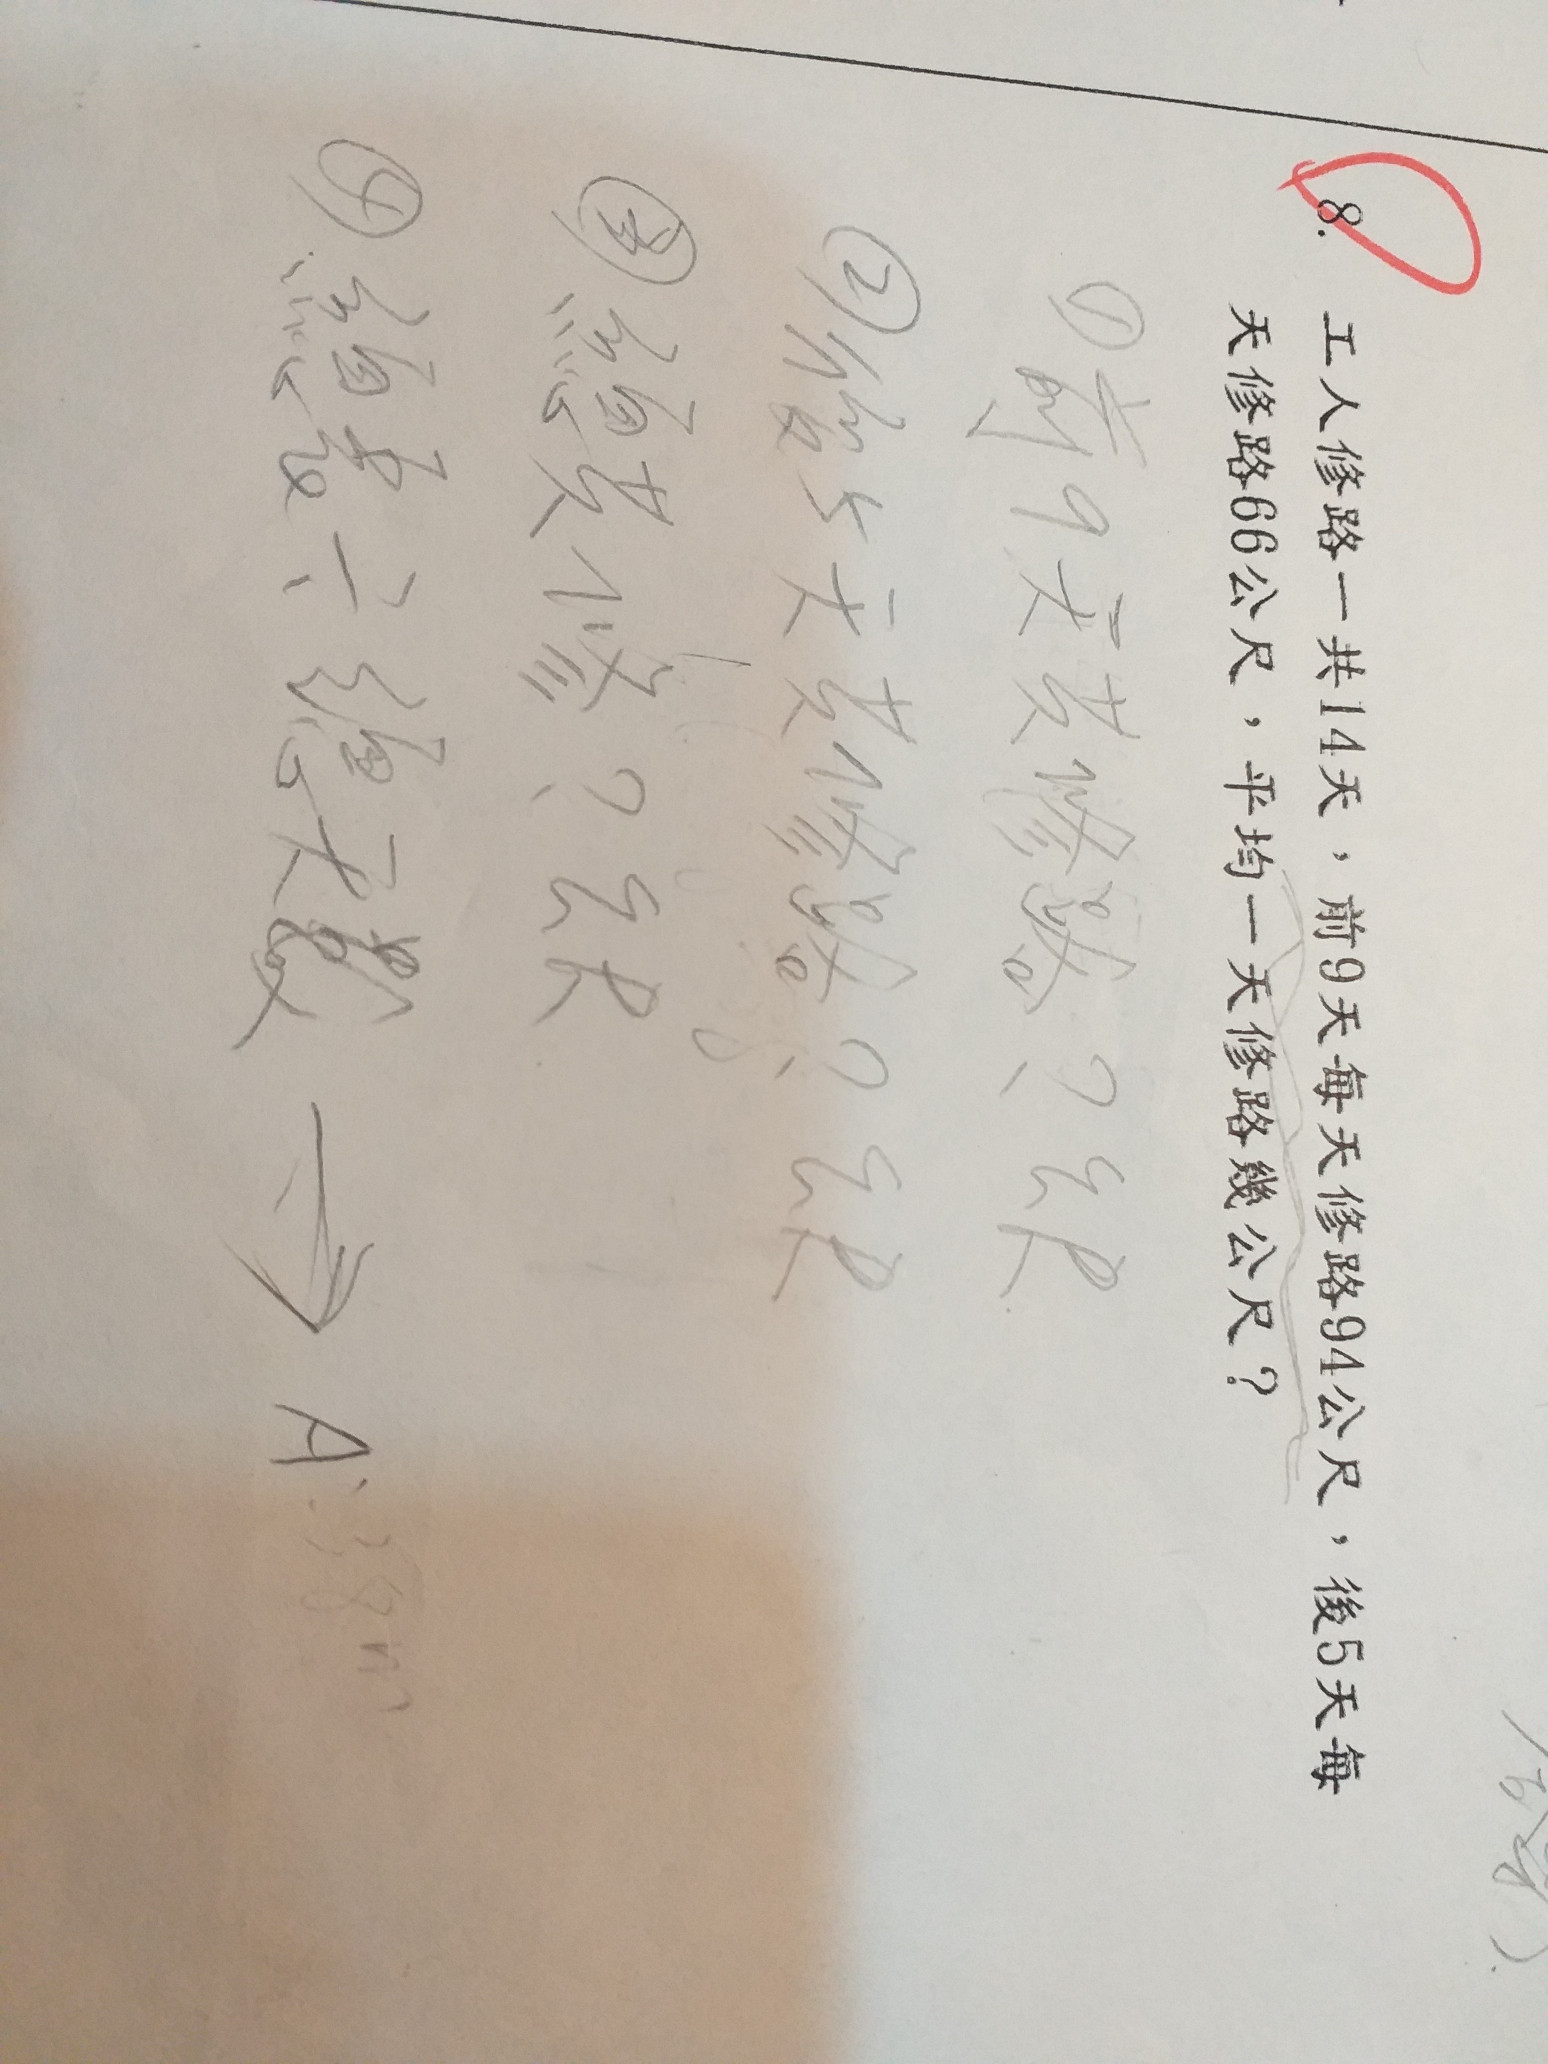 8. 工人修路一共14天，前9天每天修路94公尺，後5天每
天修路66公尺，平均一天修路幾公尺？
①前9天共修路？公尺
②後5天共修路？公尺
③總共修？公尺
④總長÷總天數→A: